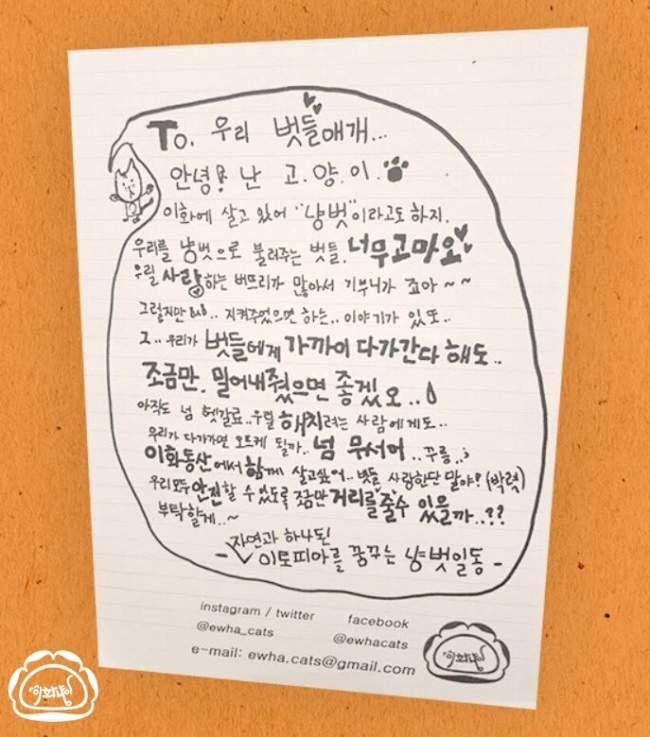 To. 우리 벗들에게...
안녕? 난 고.양.이.
이화에 살고 있어 "냥벗"이라고도 하지.
우리를 냥벗으로 불러주는 벗들. 너무고마오
우릴 사랑하는 버뜨리가 많아서 기부니가 죠아~~
그렇지만 .. 지켜주었으면 하는.. 이야기가 있또..
그.. 우리가 벗들에게 가까이 다가간다 해도..
조금만. 밀어내줬으면 좋겠오..
아직도 넘 헷갈료..우릴 해치려는 사람에게도..
우리가 다가가면 오또케 될까.. 넘 무서어 ..꾸릉..;
이화동산에서 함께 살고싶어.. 벗들 사랑한단 말야! (박력)
우리모두 안전할 수 있도록 조금만 거리를 줄수 있을까..??
부탁할게..~
- 자연과 하나된
이토피아를 꿈꾸는 냥벗일동 -
instagram / twitter facebook
@ewha_cats @ewhacats
e-mail: ewha.cats@gmail.com
이화냥이
이화냥이